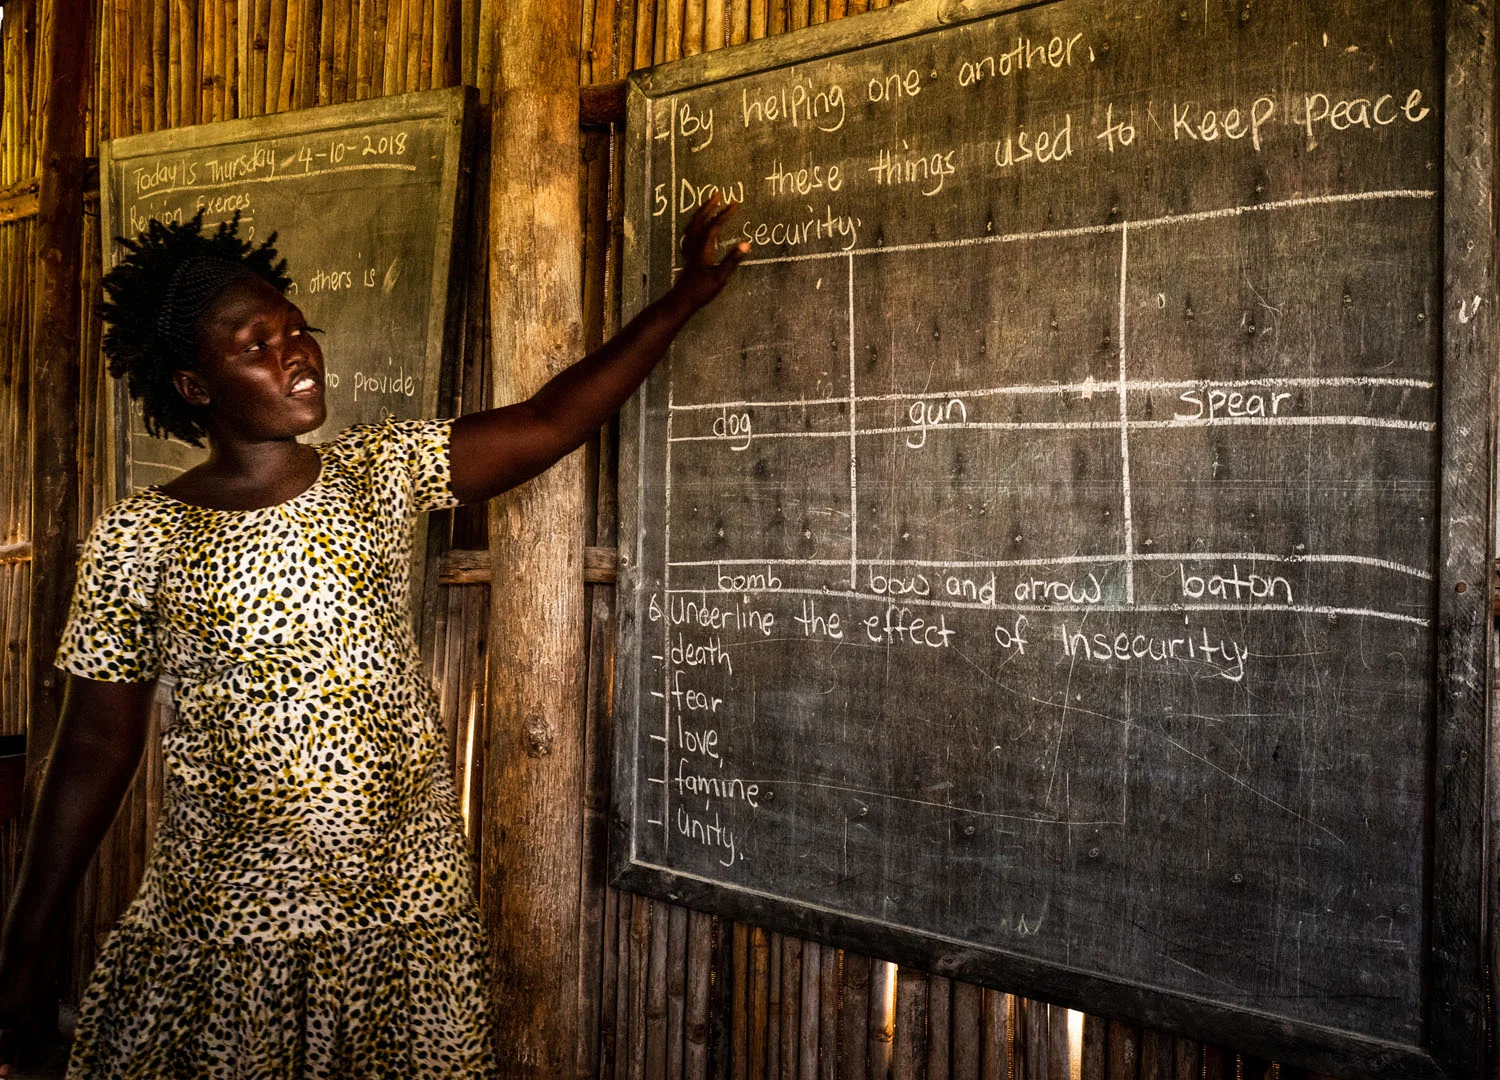 Today is Thursday - 4-10-2018
Revision Exerces.
?
others is
provide
- By helping one another.
5 Draw these things used to Keep Peace
security.
dog gun Spear
bomb bow and arrow baton
6 Underline the effect of Insecurity.
- death
- fear
- love
- famine
- Unity.